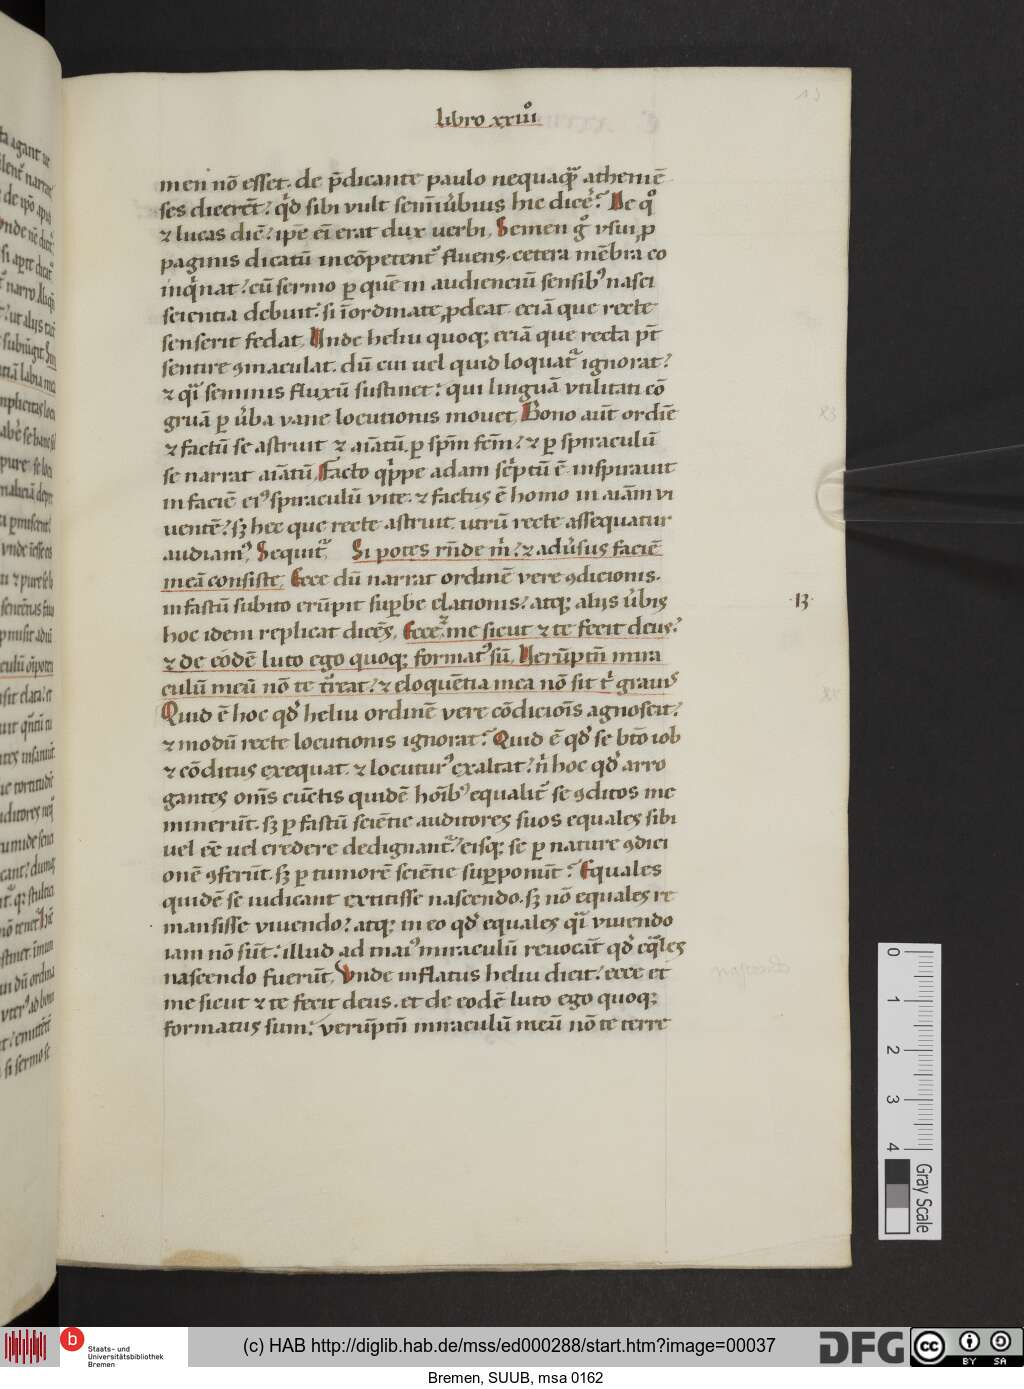 libro xxiiiº
men nō esset. de p̄dicante paulo nequaqͣ atheniē
ses dicerēt? qͥd sibi vult semīv̓bius hic dicē̓? Hc qͦ
⁊ lucas diē̓? ip̄e eī erat dux uerbi, Semen gͦ vsui, ꝓ
paginis dicatū incōpetent̓ fluens. cetera mēbra co
inqͥnat? cū sermo ꝑ quē in audienciū sensibꝰ nasci
scientia debuit? si īordinate ꝓdeat. eciā que recte
senserit fedat, Unde heliu quoqꝫ eciā que recta pt̄
sentire ꝯmaculat. dū cui uel quid loquat̓ ignorat?
⁊ qͣi seminis fluxū sustinet? qui linguā vtilitati cō
gruā ꝑ v̓ba vane locutionis mouet, Bono aūt ordiē
⁊ factū se astruit ⁊ aīatū. ꝑ spm̄ fcm̄? ⁊ ꝑ spiraculū
se narrat aīatū, Facto qͥppe adam scͥptū ē. inspirauit
in faciē eiꝰ spiraculū vite. ⁊ factus ē homo in aīam vi
uentē? sꝫ hec que recte astruit. utrū recte assequatur
audiamꝰ, Sequit̓, Si potes rn̄de m̄? ⁊ adv̓sus faciē
meā consiste, Ecce dū narrat ordinē vere ꝯdicionis.
in fastū subito erūpit suꝑbe elationis? atqꝫ alijs v̓bis
·13·
hoc idem replicat dicēs, Ecce ⁊ me sicut ⁊ te fecit deus?
⁊ de eodē luto ego quoqꝫ formatꝰ sū, Uerūptn̄ mira
culū meū nō te t̓reat? ⁊ eloquētia mea nō sit tͥ grauis
Quid ē hoc qd̓ heliu ordinē vere cōdicioīs agnoscit?
⁊ modū recte locutionis ignorat? Quid ē qd̓ se bt̄o iob
⁊ cōditus exequat. ⁊ locuturꝰ exaltat? nͥ hoc qd̓ arro
gantes om̄s cūctis quidē hoībꝰ equalit̓ se ꝯditos me
minerūt. sꝫ ꝑ fastū sciētie auditores suos equales sibi
uel eē uel credere dedignant̓? eisqꝫ se ꝑ nature ꝯdici
onē ꝯferūt. sꝫ ꝑ tumorē sciētie suꝑponūt? Equales
quidē se iudicant extitisse nascendo. sꝫ nō equales re
mansisse viuendo? atqꝫ in eo qd̓ equales qͣi viuendo
iam nō sūt? illud ad maiꝰ miraculū reuocāt qd̓ eqͣles
nascendo fuerūt, Vnde inflatus heliu dicit? ecce et
me sicut ⁊ te fecit deus. et de eodē luto ego quoqꝫ
formatus sum? verūptn̄ miraculū meū nō te terre
0 1 2 3 4
Gray Scale
b Staats- und
Universitätsbibliothek
Bremen
(c) HAB http://diglib.hab.de/mss/ed000288/start.htm?image=00037
DFG
cc BY SA
Bremen, SUUB, msa 0162